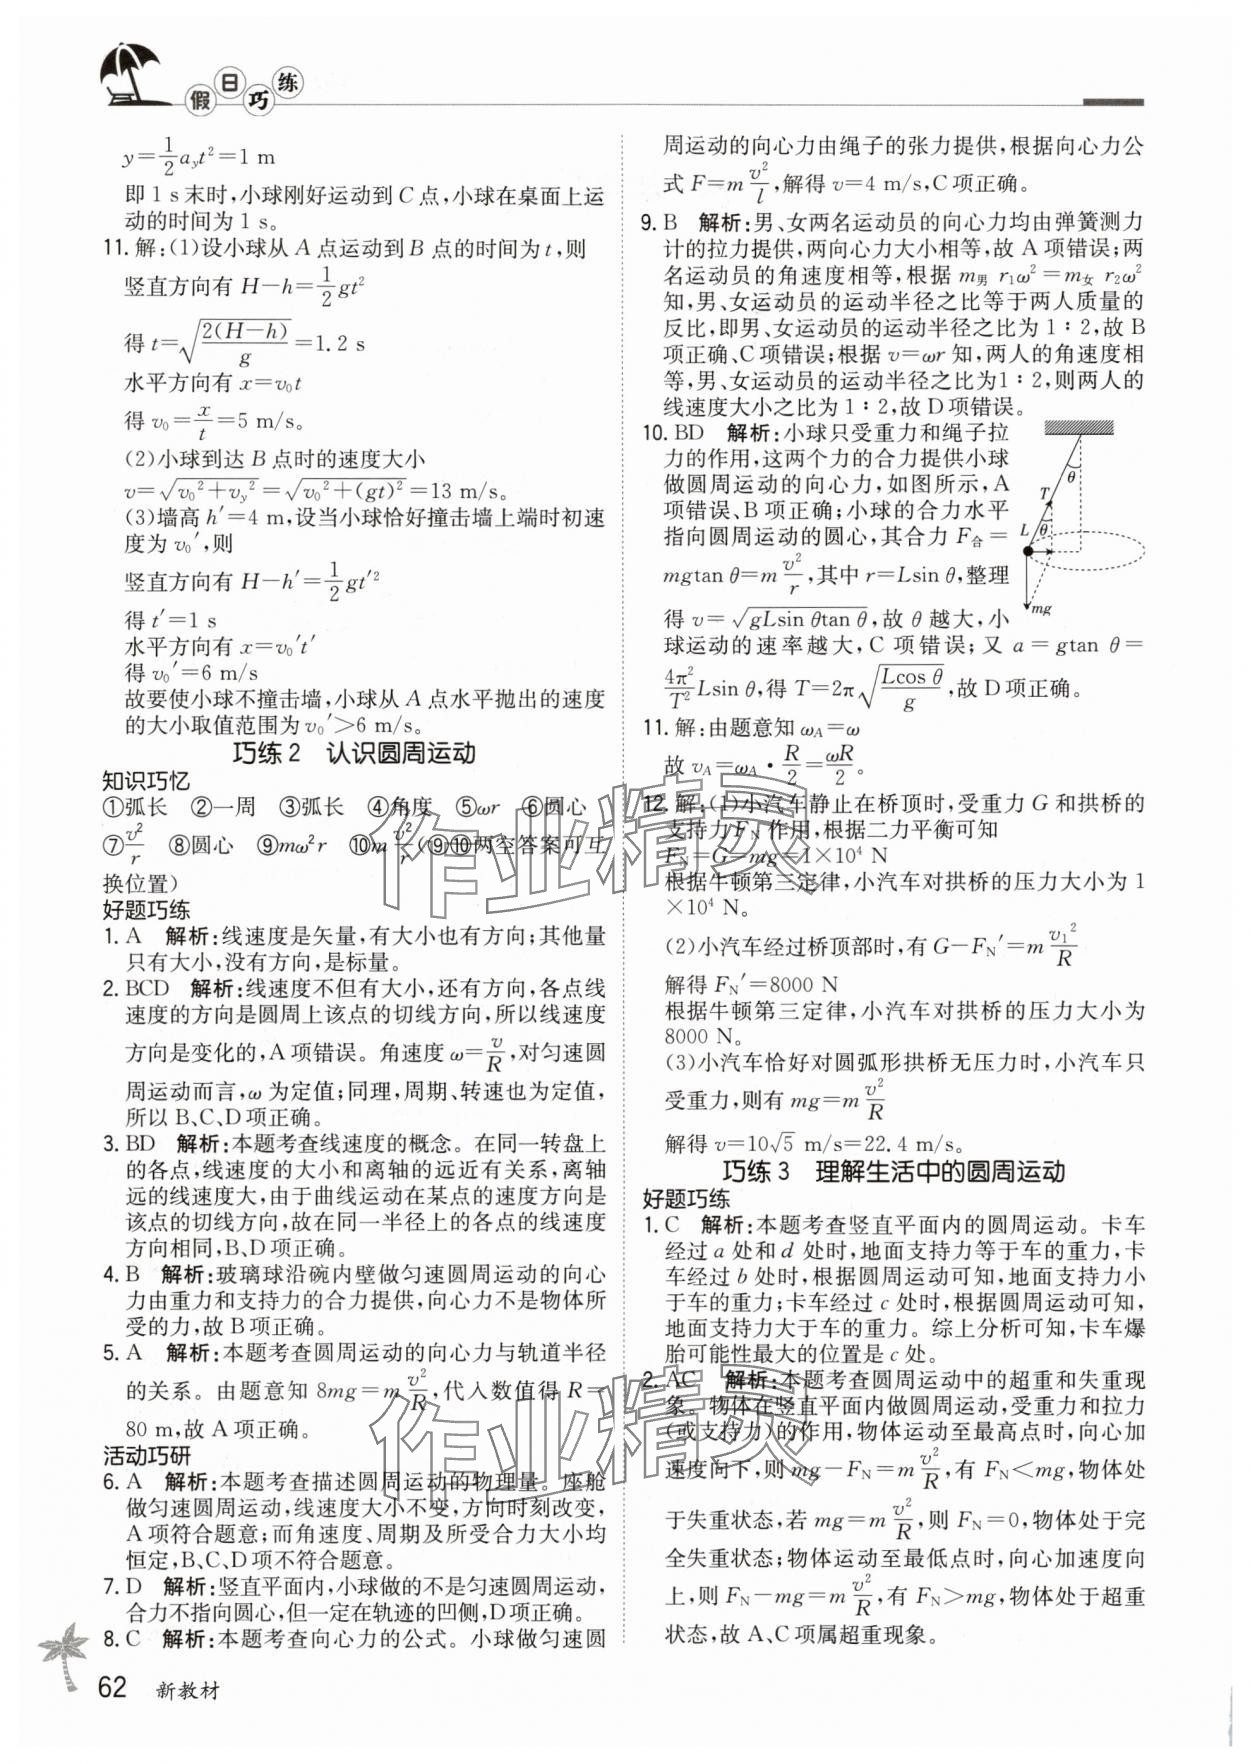 假日巧练
y=1/2 a_y t²=1 m
即 1 s 末时,小球刚好运动到 C 点,小球在桌面上运
动的时间为 1 s。
11. 解:(1)设小球从 A 点运动到 B 点的时间为 t,则
竖直方向有 H-h=1/2 gt²
得 t=√(2(H-h)/g)=1.2 s
水平方向有 x=v₀t
得 v₀=x/t=5 m/s。
(2)小球到达 B 点时的速度大小
v=√(v₀²+v_y²)=√(v₀²+(gt)²)=13 m/s。
(3)墙高 h′=4 m,设当小球恰好撞击墙上端时初速
度为 v₀′,则
竖直方向有 H-h′=1/2 gt′²
得 t′=1 s
水平方向有 x=v₀′t′
得 v₀′=6 m/s
故要使小球不撞击墙,小球从 A 点水平抛出的速度
的大小取值范围为 v₀′>6 m/s。
巧练 2 认识圆周运动
知识巧忆
①弧长 ②一周 ③弧长 ④角度 ⑤ωr ⑥圆心
⑦v²/r ⑧圆心 ⑨mω²r ⑩m v²/r(⑨⑩两空答案可互
换位置)
好题巧练
1. A 解析:线速度是矢量,有大小也有方向;其他量
只有大小,没有方向,是标量。
2. BCD 解析:线速度不但有大小,还有方向,各点线
速度的方向是圆周上该点的切线方向,所以线速度
方向是变化的,A 项错误。角速度 ω=v/R,对匀速圆
周运动而言,ω 为定值;同理,周期、转速也为定值,
所以 B、C、D 项正确。
3. BD 解析:本题考查线速度的概念。在同一转盘上
的各点,线速度的大小和离轴的远近有关系,离轴
远的线速度大,由于曲线运动在某点的速度方向是
该点的切线方向,故在同一半径上的各点的线速度
方向相同,B、D 项正确。
4. B 解析:玻璃球沿碗内壁做匀速圆周运动的向心
力由重力和支持力的合力提供,向心力不是物体所
受的力,故 B 项正确。
5. A 解析:本题考查圆周运动的向心力与轨道半径
的关系。由题意知 8mg=m v²/R,代入数值得 R=
80 m,故 A 项正确。
活动巧研
6. A 解析:本题考查描述圆周运动的物理量。座舱
做匀速圆周运动,线速度大小不变,方向时刻改变,
A 项符合题意;而角速度、周期及所受合力大小均
恒定,B、C、D 项不符合题意。
7. D 解析:竖直平面内,小球做的不是匀速圆周运动,
合力不指向圆心,但一定在轨迹的凹侧,D 项正确。
8. C 解析:本题考查向心力的公式。小球做匀速圆
周运动的向心力由绳子的张力提供,根据向心力公
式 F=m v²/l,解得 v=4 m/s,C 项正确。
9. B 解析:男、女两名运动员的向心力均由弹簧测力
计的拉力提供,两向心力大小相等,故 A 项错误;两
名运动员的角速度相等,根据 m男 r₁ω²=m女 r₂ω²
知,男、女运动员的运动半径之比等于两人质量的
反比,即男、女运动员的运动半径之比为 1∶2,故 B
项正确、C 项错误;根据 v=ωr 知,两人的角速度相
等,男、女运动员的运动半径之比为1∶2,则两人的
线速度大小之比为 1∶2,故 D 项错误。
10. BD 解析:小球只受重力和绳子拉
力的作用,这两个力的合力提供小球
做圆周运动的向心力,如图所示,A
项错误、B 项正确;小球的合力水平
指向圆周运动的圆心,其合力 F合=
mgtan θ=m v²/r,其中 r=Lsin θ,整理
得 v=√(gLsin θtan θ),故 θ 越大,小
球运动的速率越大,C 项错误;又 a=gtan θ=
4π²/T² Lsin θ,得 T=2π√(Lcos θ/g),故 D 项正确。
θ
T
L
θ
mg
11. 解:由题意知 ω_A=ω
故 v_A=ω_A·R/2=ωR/2。
12. 解:(1)小汽车静止在桥顶时,受重力 G 和拱桥的
支持力 F_N 作用,根据二力平衡可知
F_N=G=mg=1×10⁴ N
根据牛顿第三定律,小汽车对拱桥的压力大小为 1
×10⁴ N。
(2)小汽车经过桥顶部时,有 G-F_N′=m v₁²/R
解得 F_N′=8000 N
根据牛顿第三定律,小汽车对拱桥的压力大小为
8000 N。
(3)小汽车恰好对圆弧形拱桥无压力时,小汽车只
受重力,则有 mg=m v²/R
解得 v=10√5 m/s=22.4 m/s。
巧练 3 理解生活中的圆周运动
好题巧练
1. C 解析:本题考查竖直平面内的圆周运动。卡车
经过 a 处和 d 处时,地面支持力等于车的重力,卡
车经过 b 处时,根据圆周运动可知,地面支持力小
于车的重力;卡车经过 c 处时,根据圆周运动可知,
地面支持力大于车的重力。综上分析可知,卡车爆
胎可能性最大的位置是 c 处。
2. AC 解析:本题考查圆周运动中的超重和失重现
象。物体在竖直平面内做圆周运动,受重力和拉力
(或支持力)的作用,物体运动至最高点时,向心加
速度向下,则 mg-F_N=m v²/R,有 F_N<mg,物体处
于失重状态,若 mg=m v²/R,则 F_N=0,物体处于完
全失重状态;物体运动至最低点时,向心加速度向
上,则 F_N-mg=m v²/R,有 F_N>mg,物体处于超重
状态,故 A、C 项属超重现象。
作业精灵
作业精灵
62 新教材